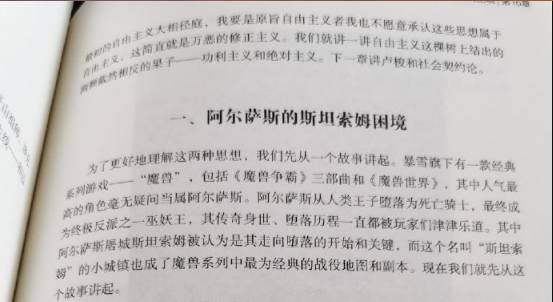 最初的自由主义大相径庭，我要是原旨自由主义者我也不愿意承认这些思想属于
自由主义，这简直就是万恶的修正主义。我们就讲一讲自由主义这棵树上结出的
两颗截然相反的果子——功利主义和绝对主义。下一章讲卢梭和社会契约论。
一、阿尔萨斯的斯坦索姆困境
为了更好地理解这两种思想，我们先从一个故事讲起。暴雪旗下有一款经典
系列游戏——“魔兽”，包括《魔兽争霸》三部曲和《魔兽世界》，其中人气最
高的角色毫无疑问当属阿尔萨斯。阿尔萨斯从人类王子堕落为死亡骑士，最终成
为终极反派之一巫妖王，其传奇身世、堕落历程一直都被玩家们津津乐道。其中
阿尔萨斯屠城斯坦索姆被认为是其走向堕落的开始和关键，而这个名叫“斯坦索
姆”的小城镇也成了魔兽系列中最为经典的战役地图和副本。现在我们就先从这
个故事讲起。